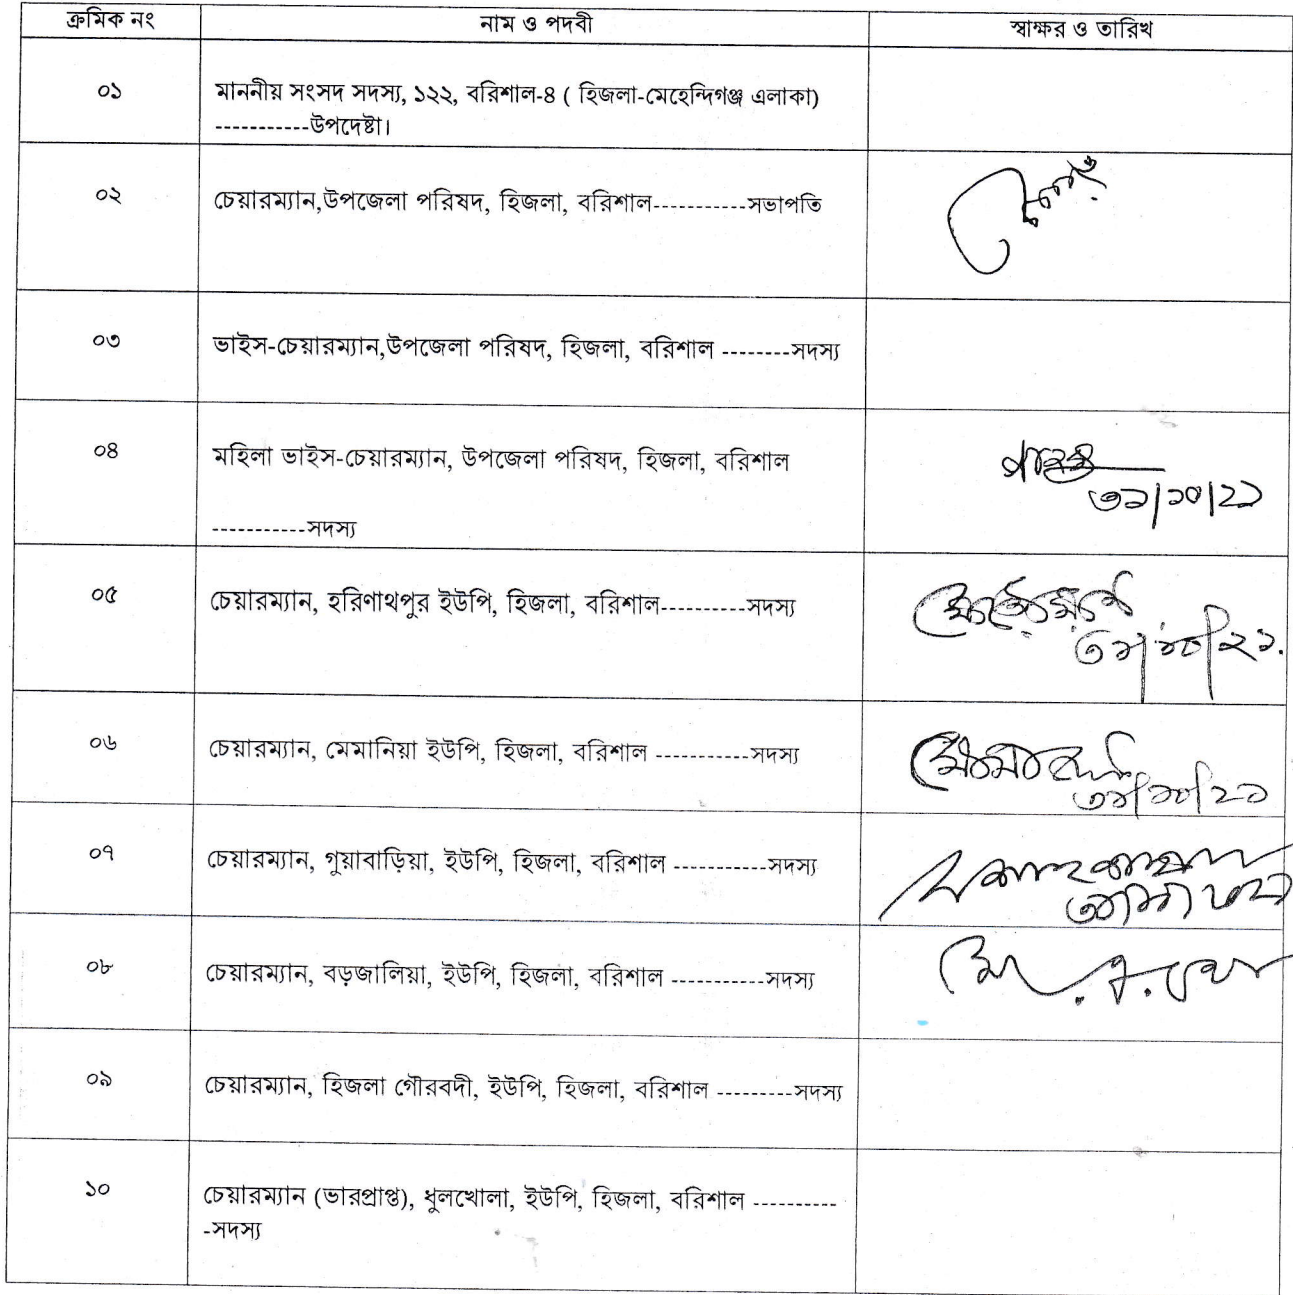 ক্রমিক নং নাম ও পদবী স্বাক্ষর ও তারিখ
০১ মাননীয় সংসদ সদস্য, ১২২, বরিশাল-৪ ( হিজলা-মেহেন্দিগঞ্জ এলাকা)
-----------উপদেষ্টা।
০২ চেয়ারম্যান,উপজেলা পরিষদ, হিজলা, বরিশাল-----------সভাপতি
০৩ ভাইস-চেয়ারম্যান,উপজেলা পরিষদ, হিজলা, বরিশাল --------সদস্য
০৪ মহিলা ভাইস-চেয়ারম্যান, উপজেলা পরিষদ, হিজলা, বরিশাল
-----------সদস্য
৩১/১০/২১
০৫ চেয়ারম্যান, হরিণাথপুর ইউপি, হিজলা, বরিশাল----------সদস্য
৩১/১০/২১.
০৬ চেয়ারম্যান, মেমানিয়া ইউপি, হিজলা, বরিশাল -----------সদস্য
৩১/১০/২১
০৭ চেয়ারম্যান, গুয়াবাড়িয়া, ইউপি, হিজলা, বরিশাল -----------সদস্য
০৮ চেয়ারম্যান, বড়জালিয়া, ইউপি, হিজলা, বরিশাল -----------সদস্য
০৯ চেয়ারম্যান, হিজলা গৌরবদী, ইউপি, হিজলা, বরিশাল ---------সদস্য
১০ চেয়ারম্যান (ভারপ্রাপ্ত), ধুলখোলা, ইউপি, হিজলা, বরিশাল ----------
-সদস্য